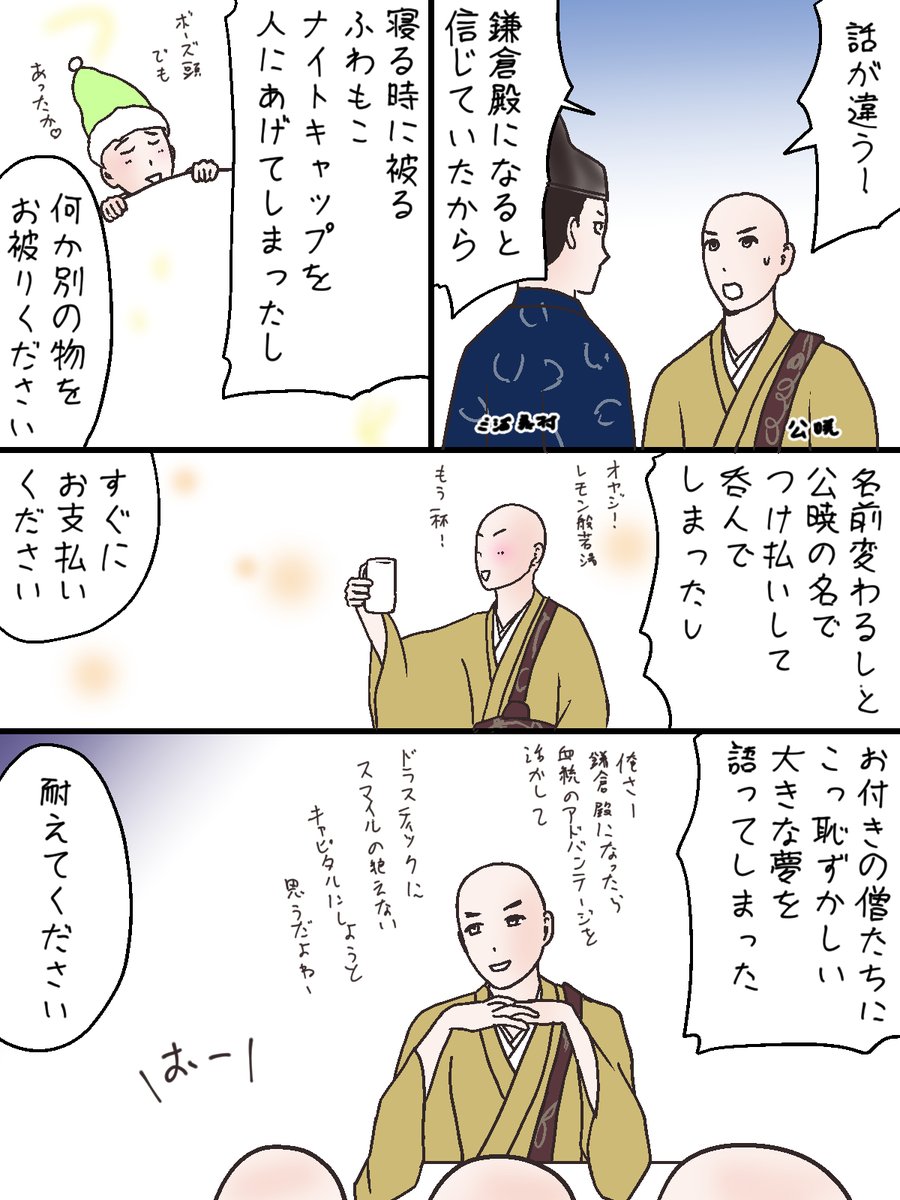 話が違うー
鎌倉殿になると
信じていたから
三浦義村
公暁
寝る時に被る
ふわもこ
ナイトキャップを
人にあげてしまったし
ボーズ頭
でも
あったか♡
何か別の物を
お被りください
名前変わるしと
公暁の名で
つけ払いして
呑んで
しまったし
オヤジ！
レモン般若湯
もう一杯！
すぐに
お支払い
ください
お付きの僧たちに
こっ恥ずかしい
大きな夢を
語ってしまった
俺さー
鎌倉殿になったら
血統のアドバンテージを
活かして
ドラスティックに
スマイルの絶えない
キャピタルにしようと
思うだよねー
耐えてください
\おー/